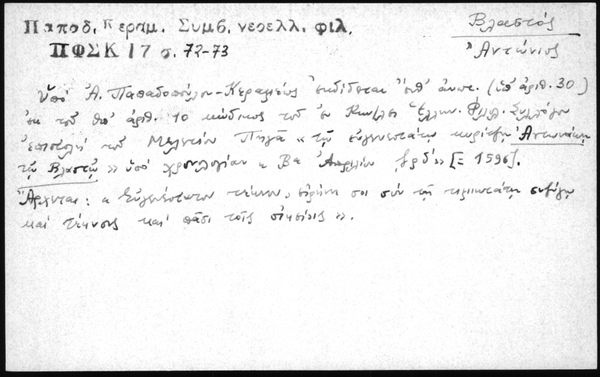 Παπαδ. Κεραμ. Συμβ. νεοελλ. φιλ.
Βλαστός
ΠΦΣΚ 17 σ. 72-73
Ἀντώνιος
Ὑπό Ἀ. Παπαδοπούλου-Κεραμέως ἐκδίδεται ἐνθ' ἀνωτ. (ὑπ' ἀριθ. 30)
ἐκ τοῦ ὑπ' ἀριθ. 10 κώδικος τοῦ ἐν Κων/λει Ἑλλην. Φιλ. Συλλόγου
ἐπιστολή τοῦ Μελετίου Πηγᾶ « τῷ εὐγενεστάτῳ κυρίῳ Ἀντωνίῳ
τῷ Βλαστῷ » ὑπό χρονολογίαν « Βᾳ Ἀπριλίου ͵αφϟδ' » [= 1596].
Ἄρχεται: « Εὐγενέστατον τέκνον, εἰρήνη σοι σύν τῇ τιμιωτάτῃ συζύγῳ
καί τέκνοις καί πᾶσι τοῖς οἰκείοις ».